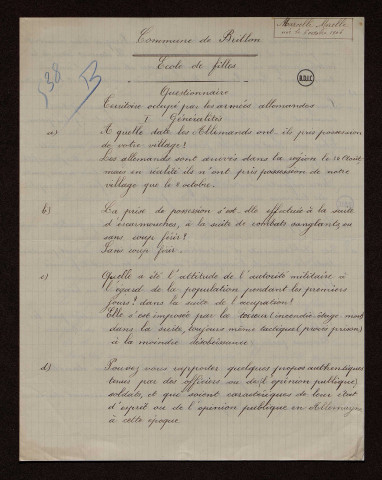 Commune de
Ecole de filles
B.D.I.C
Questionnaire
Territoire occupé par les armées allemandes
I Généralités
a) A quelle date les Allemands ont-ils pris possession
de votre village?
Les allemands sont arrivés dans la région le
mais en réalité ils n'ont pris possession de notre
village que le 2 octobre.
b) La prise de possession s'est-elle effectuée à la suite
d'escarmouches, à la suite de combats sanglants ou
sans coup férir?
Sans coup férir.
c) Quelle a été l'attitude de l'autorité militaire à
l'égard de la population pendant les premiers
jours? dans la suite de l'occupation?
Elle s'est imposée par la terreur (incendie
dans la suite, toujours même tactique (procès prison)
à la moindre désobéissance
d) Pouvez vous rapporter quelques propos authentiques
tenus par des officiers ou des (opinion publique)
soldats, et qui soient caractéristiques de leur état
d'esprit ou de l'opinion publique en Allemagne
à cette époque